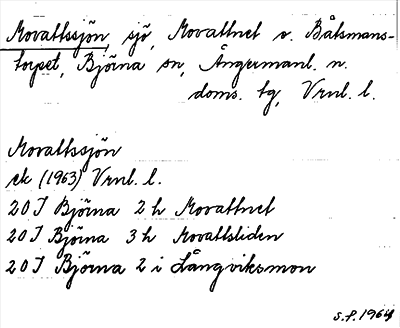 Movattssjön, sjö, Movattnet v. Båtsmans-
torpet, Björna sn, Ångermanl. n.
doms. tg, Vrnl. l.
Movattssjön
ek (1963) Vrnl. l.
20 I Björna 2 h Movattnet
20 I Björna 3 h Movattsliden
20 I Björna 2 i Långviksmon
S.F. 1964